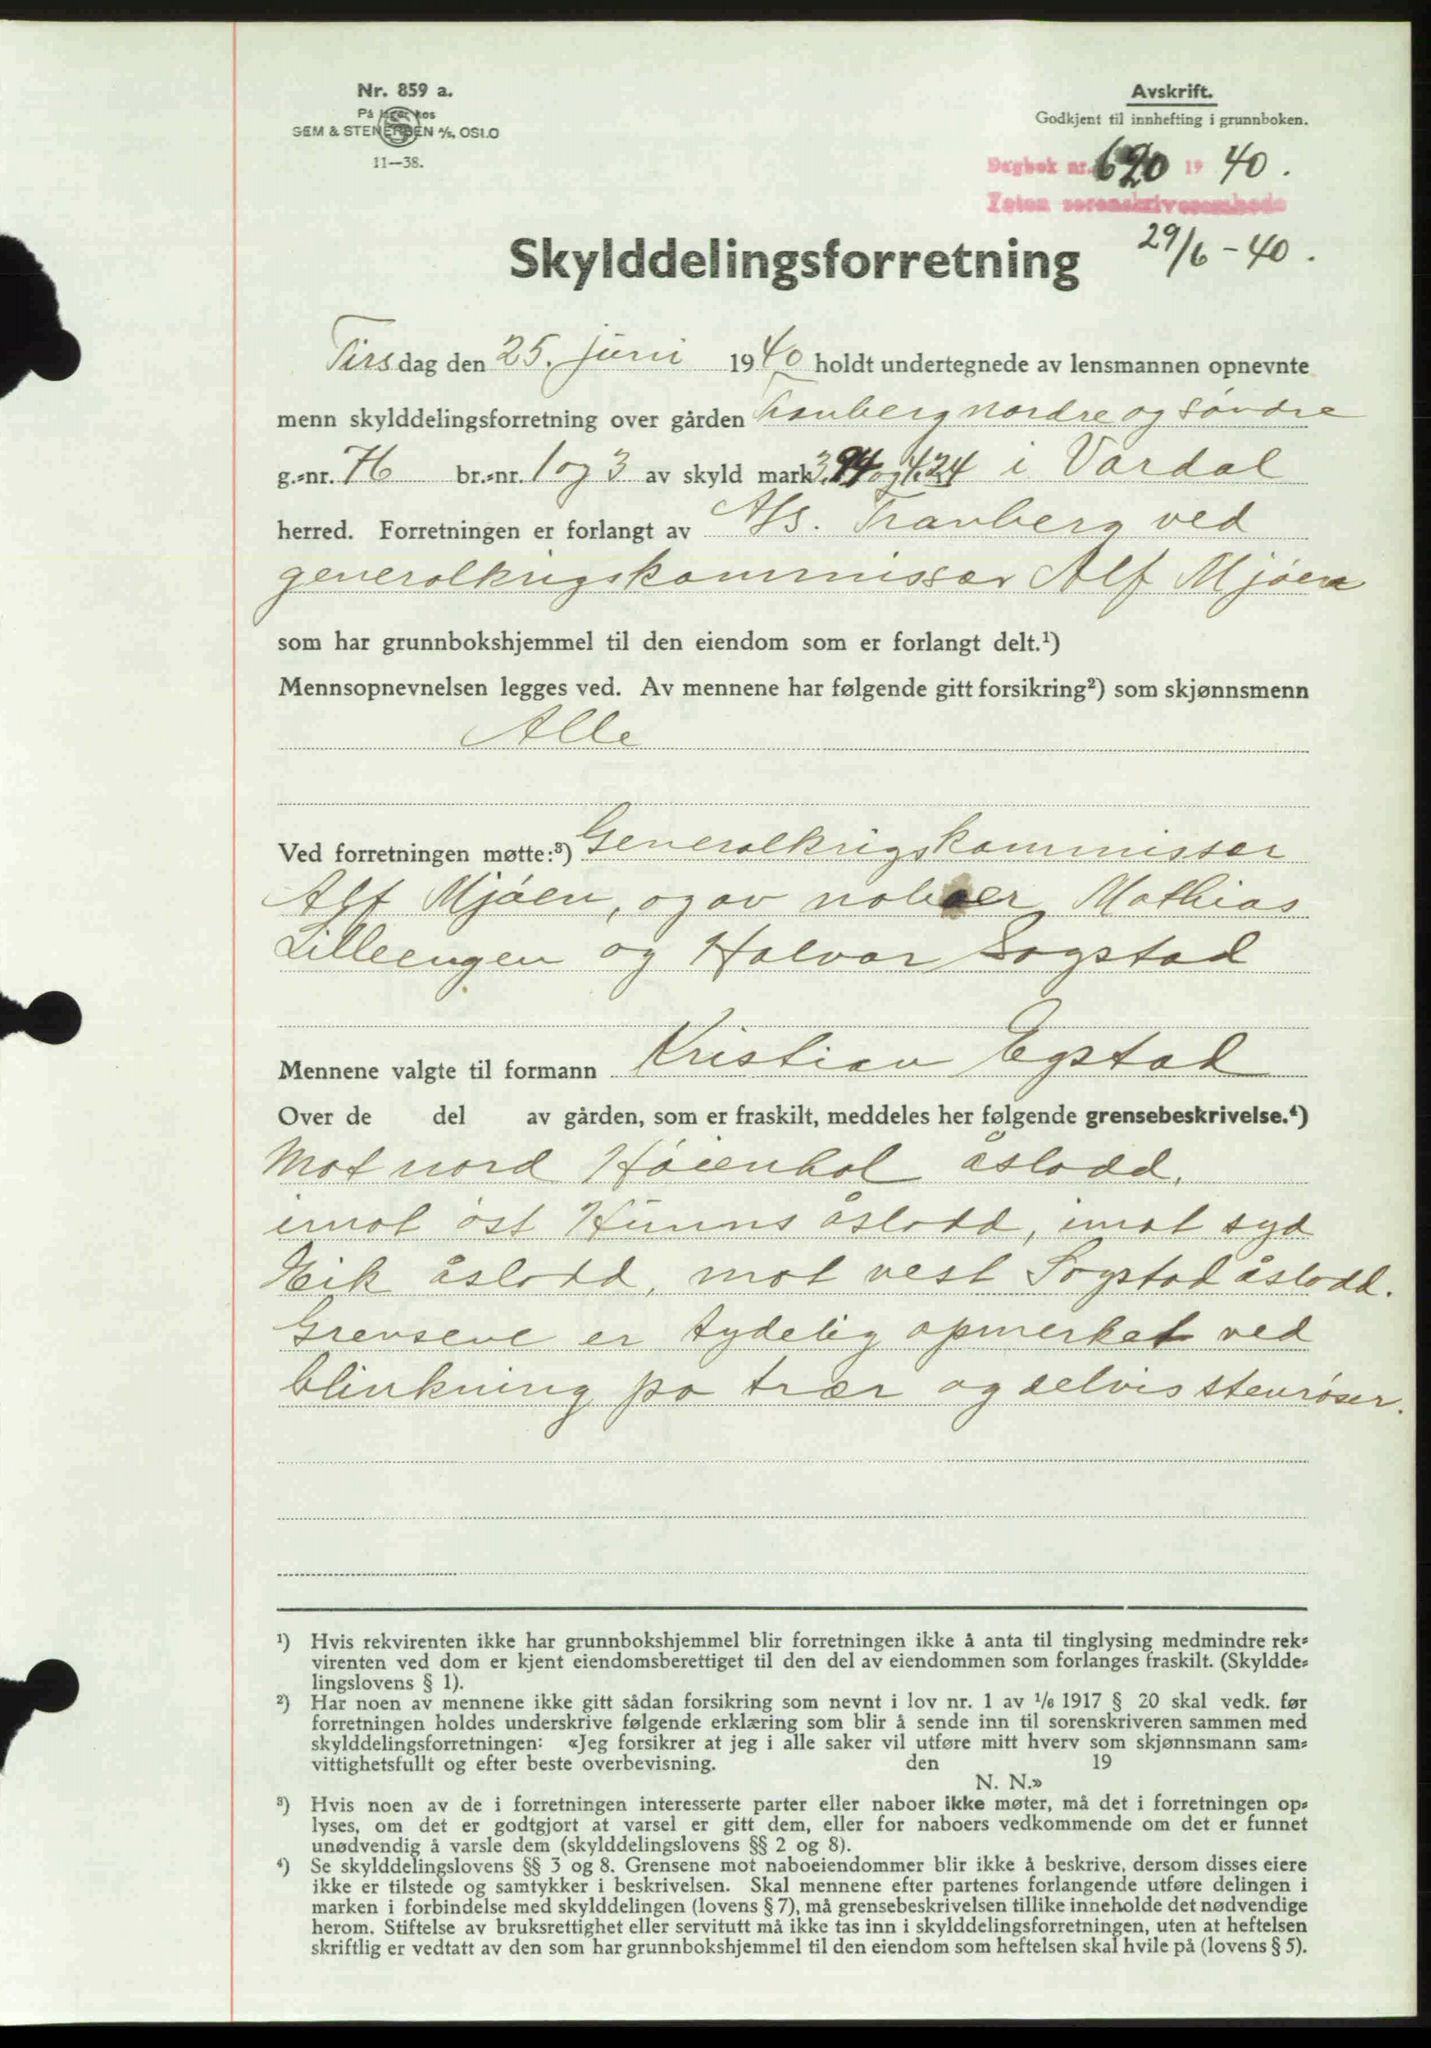 Nr. 859 a.
På lager hos
SEM & STENERSEN A/S, OSLO
11—38.
Avskrift.
Godkjent til innhefting i grunnboken.
Dagbok nr. 620 19 40.
Toten sorenskriverembede
29/6 - 40.
Skylddelingsforretning
Tirsdag den 25. juni 1940 holdt undertegnede av lensmannen opnevnte
menn skylddelingsforretning over gården Tranberg nordre og søndre
g.-nr. 76 br.-nr. 1 og 3 av skyld mark 3.94 og 4.24 i Vardal
herred. Forretningen er forlangt av A/S. Tranberg ved
generalkrigskommissær Alf Mjøen
som har grunnbokshjemmel til den eiendom som er forlangt delt.¹)
Mennsopnevnelsen legges ved. Av mennene har følgende gitt forsikring²) som skjønnsmenn
Alle
Ved forretningen møtte:³) Generalkrigskommissær
Alf Mjøen, og av naboer Mathias
Lilleengen og Halvor Sogstad
Mennene valgte til formann Kristian Egstad
Over de del av gården, som er fraskilt, meddeles her følgende grensebeskrivelse.⁴)
Mot nord Høienhal åslodd,
imot øst Hunns åslodd, imot syd
Eik åslodd, mot vest Sogstad åslodd.
Grensene er tydelig opmerket ved
blinkning på trær og delvis stenrøser.
¹) Hvis rekvirenten ikke har grunnbokshjemmel blir forretningen ikke å anta til tinglysing medmindre rek-
virenten ved dom er kjent eiendomsberettiget til den del av eiendommen som forlanges fraskilt. (Skyldde-
lingslovens § 1).
²) Har noen av mennene ikke gitt sådan forsikring som nevnt i lov nr. 1 av 1/6 1917 § 20 skal vedk. før
forretningen holdes underskrive følgende erklæring som blir å sende inn til sorenskriveren sammen med
skylddelingsforretningen: «Jeg forsikrer at jeg i alle saker vil utføre mitt hverv som skjønnsmann sam-
vittighetsfullt og efter beste overbevisning. den 19
N. N.»
³) Hvis noen av de i forretningen interesserte parter eller naboer ikke møter, må det i forretningen op-
lyses, om det er godtgjort at varsel er gitt dem, eller for naboers vedkommende om det er funnet
unødvendig å varsle dem (skylddelingslovens §§ 2 og 8).
⁴) Se skylddelingslovens §§ 3 og 8. Grensene mot naboeiendommer blir ikke å beskrive, dersom disses eiere
ikke er tilstede og samtykker i beskrivelsen. Skal mennene efter partenes forlangende utføre delingen i
marken i forbindelse med skylddelingen (lovens § 7), må grensebeskrivelsen tillike inneholde det nødvendige
herom. Stiftelse av bruksrettighet eller servitutt må ikke tas inn i skylddelingsforretningen, uten at heftelsen
skriftlig er vedtatt av den som har grunnbokshjemmel til den eiendom som heftelsen skal hvile på (lovens § 5).